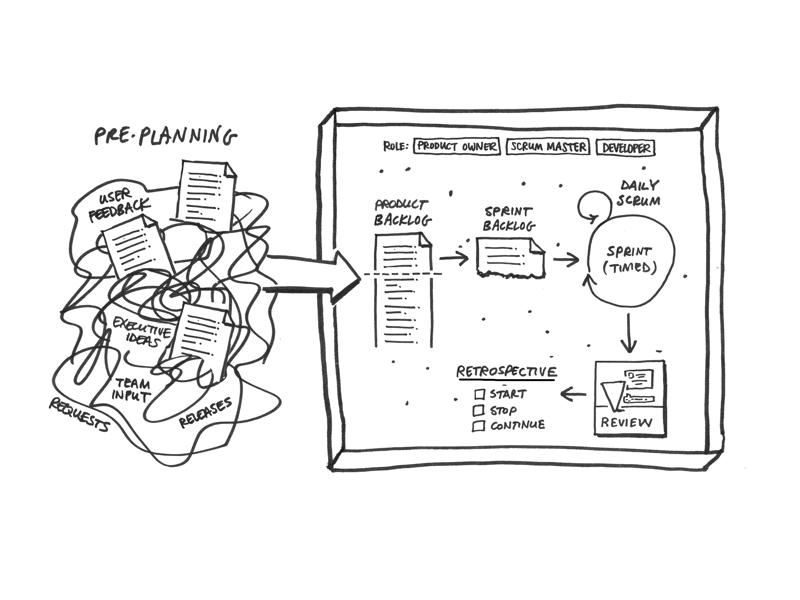 PRE-PLANNING
USER
FEEDBACK
EXECUTIVE
IDEAS
TEAM
INPUT
REQUESTS
RELEASES
ROLE: PRODUCT OWNER SCRUM MASTER DEVELOPER
PRODUCT
BACKLOG
SPRINT
BACKLOG
DAILY
SCRUM
SPRINT
(TIMED)
REVIEW
RETROSPECTIVE
START
STOP
CONTINUE